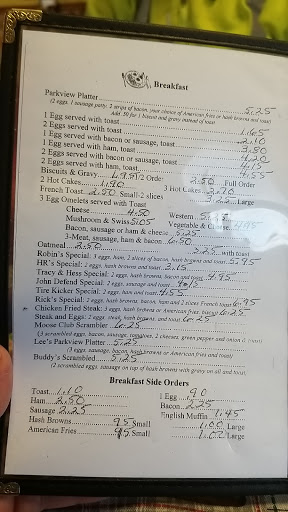 Breakfast
Parkview Platter 5.25
(2 eggs, 1 sausage patty, 2 strips of bacon, your choice of American fries or hash browns and toast)
Add .50 for 1 biscuit and gravy instead of toast
1 Egg served with toast 1.65
2 Eggs served with toast 2.10
1 Egg served with bacon or sausage, toast 3.50
1 Egg served with ham, toast 4.20
2 Eggs served with bacon or sausage, toast 4.15
2 Eggs served with ham, toast 4.55
Biscuits & Gravy 1/2 Order 2.50 Full Order
2 Hot Cakes 1.90 3 Hot Cakes 2.70
French Toast 2.50 Small-2 slices 3.25 Large
3 Egg Omelets served with Toast
Cheese 4.50 Western
Mushroom & Swiss 5.05 Vegetable & Cheese 4.95
Bacon, sausage or ham & cheese 5.25
3-Meat, sausage, ham & bacon 6.50
Oatmeal 2.50 with toast
Robin's Special: 2 eggs, ham, 2 slices of bacon, hash browns and toast 5.95
HR's Special: 2 eggs, hash browns and toast 3.15
Tracy & Hess Special: 2 eggs, hash browns, bacon and toast 4.95
John Defend Special: 2 eggs, sausage and toast 4.15
Tire Kicker Special: 2 eggs, ham and toast 4.55
Rick's Special: 2 eggs, hash browns, bacon, ham and 2 slices French toast 6.95
Chicken Fried Steak: 3 eggs, hash browns or American fries, biscuit 6.25
Steak and Eggs: 2 eggs, steak, hash browns, and toast 6.25
Moose Club Scrambler 6.25
(3 scrambled eggs, bacon, sausage, tomatoes, 2 cheeses, green pepper and onion & toast)
Lee's Parkview Platter 5.25
(3 eggs, sausage, bacon, hash browns or American fries and toast)
Buddy's Scrambled 5.25
(2 scrambled eggs, sausage on top of hash browns with gravy on all and toast)
Breakfast Side Orders
Toast 1.10 1 Egg .90
Ham 2.50 Bacon 2.25
Sausage 2.25 English Muffin 1.45
Hash Browns .95 Small 1.00 Large
American Fries .95 Small 1.00 Large